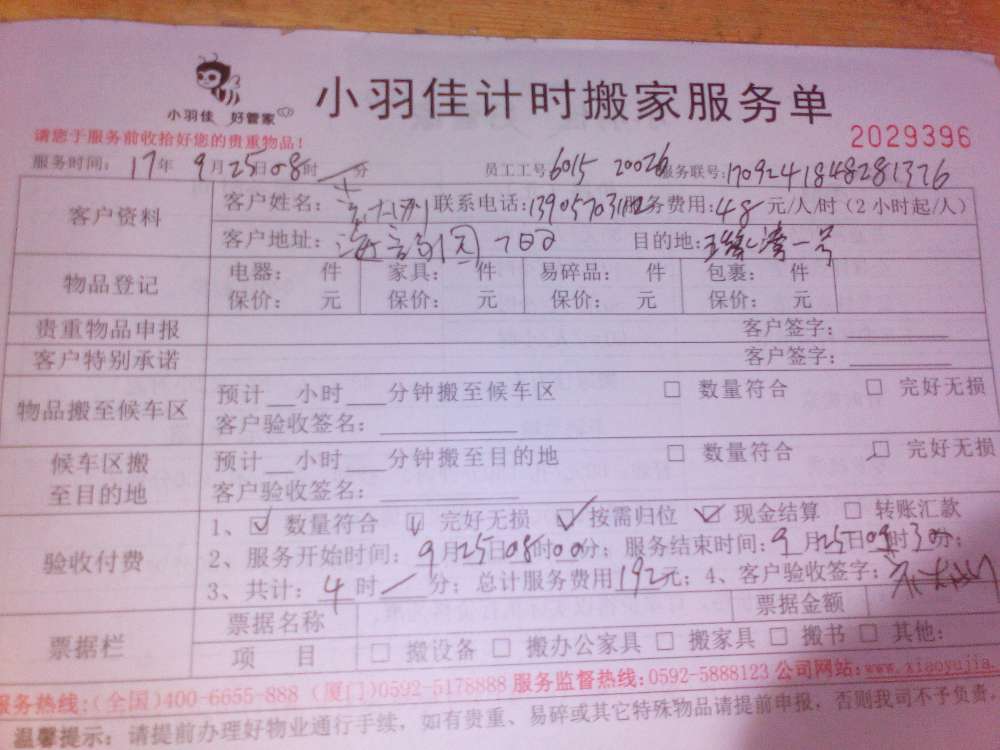 小羽佳 好管家
小羽佳计时搬家服务单
请您于服务前收拾好您的贵重物品!
2029396
服务时间: 17年 9月25日08时 分 员工工号6015 20026 服务联号:170924184828 1376
客户资料
客户姓名: 联系电话: 服务费用:48元/人/时(2小时起/人)
客户地址: 目的地: 湾一号
物品登记
电器: 件 家具: 件 易碎品: 件 包裹: 件
保价: 元 保价: 元 保价: 元 保价: 元
贵重物品申报 客户签字:
客户特别承诺 客户签字:
物品搬至候车区
预计__小时___分钟搬至候车区 □ 数量符合 □ 完好无损
客户验收签名:
候车区搬至目的地
预计__小时___分钟搬至目的地 □ 数量符合 □ 完好无损
客户验收签名:
验收付费
1、☑ 数量符合 ☑ 完好无损 ☑ 按需归位 ☑ 现金结算 □ 转账汇款
2、服务开始时间:9月25日08时00分;服务结束时间:9月25日09时30分;
3、共计:4时 分;总计服务费用192元;4、客户验收签字:
票据栏
票据名称 票据金额
项 目 □ 搬设备 □ 搬办公家具 □ 搬家具 □ 搬书 □ 其他:
服务热线:(全国)400-6655-888 (厦门)0592-5178888 服务监督热线:0592-5888123 公司网站:www.xiaoyujia.
温馨提示:请提前办理好物业通行手续,如有贵重、易碎或其它特殊物品请提前申报,否则我司不予负责。